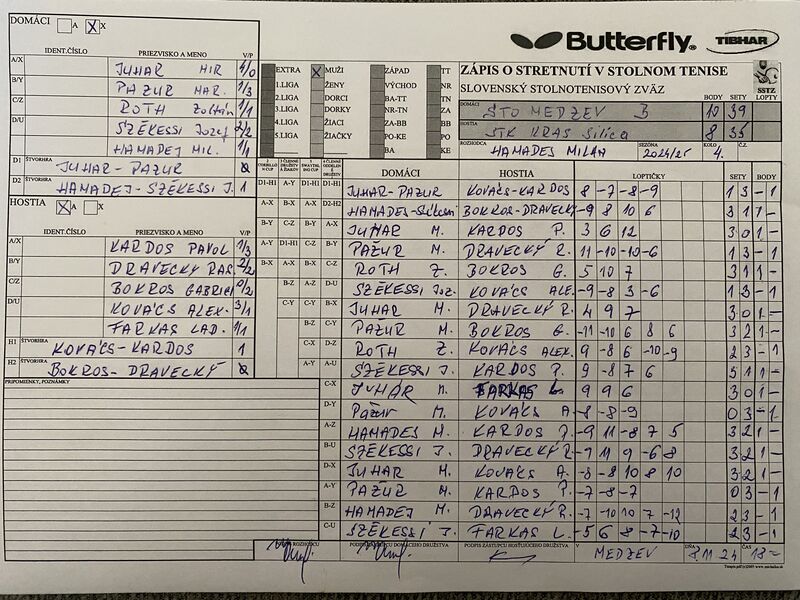 DOMÁCI A X
IDENT.ČÍSLO PRIEZVISKO A MENO V/P
A/X JUHAR MIR 4/0
B/Y PAZUR MAR. 1/3
C/Z ROTH Zoltán 1/1
D/U SZÉKESSI Jozef 2/2
HAMADEJ MIL. 1/1
D1 ŠTVORHRA JUHAR-PAZUR 0
D2 HAMADEJ-SZÉKESSI J. 1
HOSTIA A X
IDENT.ČÍSLO PRIEZVISKO A MENO V/P
A/X KARDOS PAVOL 1/3
B/Y DRAVECKÝ RAS. 2/2
C/Z BOKROS GABRIEL 0/2
D/U KOVÁCS ALEX. 3/1
FARKAS LAD. 1/1
H1 ŠTVORHRA KOVÁCS-KARDOS 1
H2 ŠTVORHRA BOKROS-DRAVECKÝ 0
PRIPOMIENKY, POZNÁMKY
Butterfly TIBHAR
EXTRA X MUŽI ZÁPAD TT
1.LIGA ŽENY VÝCHOD NR
2.LIGA DORCI BA-TT TN
3.LIGA DORKY NR-TN ZA
4.LIGA ŽIACI ZA-BB BB
5.LIGA ŽIAČKY PO-KE PO
BA KE
ZÁPIS O STRETNUTÍ V STOLNOM TENISE
SLOVENSKÝ STOLNOTENISOVÝ ZVÄZ SSTZ
BODY SETY LOPTY
DOMÁCI STO MEDZEV B 10 39
HOSTIA STK KRAS Silica 8 35
ROZHODCA HAMADEJ MILAN SEZÓNA 2024/25 KOLO 4. Č.Z.
DOMÁCI HOSTIA LOPTIČKY SETY BODY
D1-H1 A-Y D1-H1 D1-H1 JUHAR-PAZUR KOVÁCS-KARDOS 8 -7 -8 -9 1 3 - 1
A-X B-X A-X D2-H2 HAMADEJ-Székessi BOKROS-DRAVECKÝ -9 8 10 6 3 1 1 -
B-Y C-Z B-Y A-X JUHAR M. KARDOS P. 3 6 12 3 0 1 -
A-Y D1-H1 C-Z B-Y PAZUR M. DRAVECKÝ R. 11 -10 -10 -6 1 3 - 1
B-X A-X B-X C-Z ROTH Z. BOKROS G. 5 10 7 3 1 1 -
B-Z A-Z D-U SZÉKESSI Joz. KOVÁCS ALE. -9 -8 3 -6 1 3 - 1
C-Y B-X JUHAR M. DRAVECKÝ R. 4 9 7 3 0 1 -
B-Z C-Y PAZUR M. BOKROS G. -11 -10 6 8 6 3 2 1 -
C-X D-Z ROTH Z. KOVÁCS ALEX. 9 -8 6 -10 -9 2 3 - 1
A-Y A-U SZÉKESSI J. KARDOS P. -9 8 7 6
C-X JUHÁR M. FARKAS L. 9 9 6 3 0 1 -
D-Y PAZUR M. KOVÁCS A. -8 -8 -9 0 3 - 1
A-Z HAMADEJ M. KARDOS P. -9 11 -8 7 5 3 2 1 -
B-U SZÉKESSI J. DRAVECKÝ R. -7 11 9 -6 8 3 2 1 -
D-X JUHAR M. KOVÁCS A. -3 -8 10 8 10 3 2 1 -
A-Y PAZUR M. KARDOS P. -7 -8 -7 0 3 - 1
B-Z HAMADEJ M. DRAVECKÝ R. -7 10 10 7 -12 2 3 - 1
C-U SZÉKESSI J. FARKAS L. -5 6 8 -7 -10 2 3 - 1
PODPIS ZÁSTUPCU HOSŤUJÚCEHO DRUŽSTVA V MEDZEV DŇA 8.11.24 18